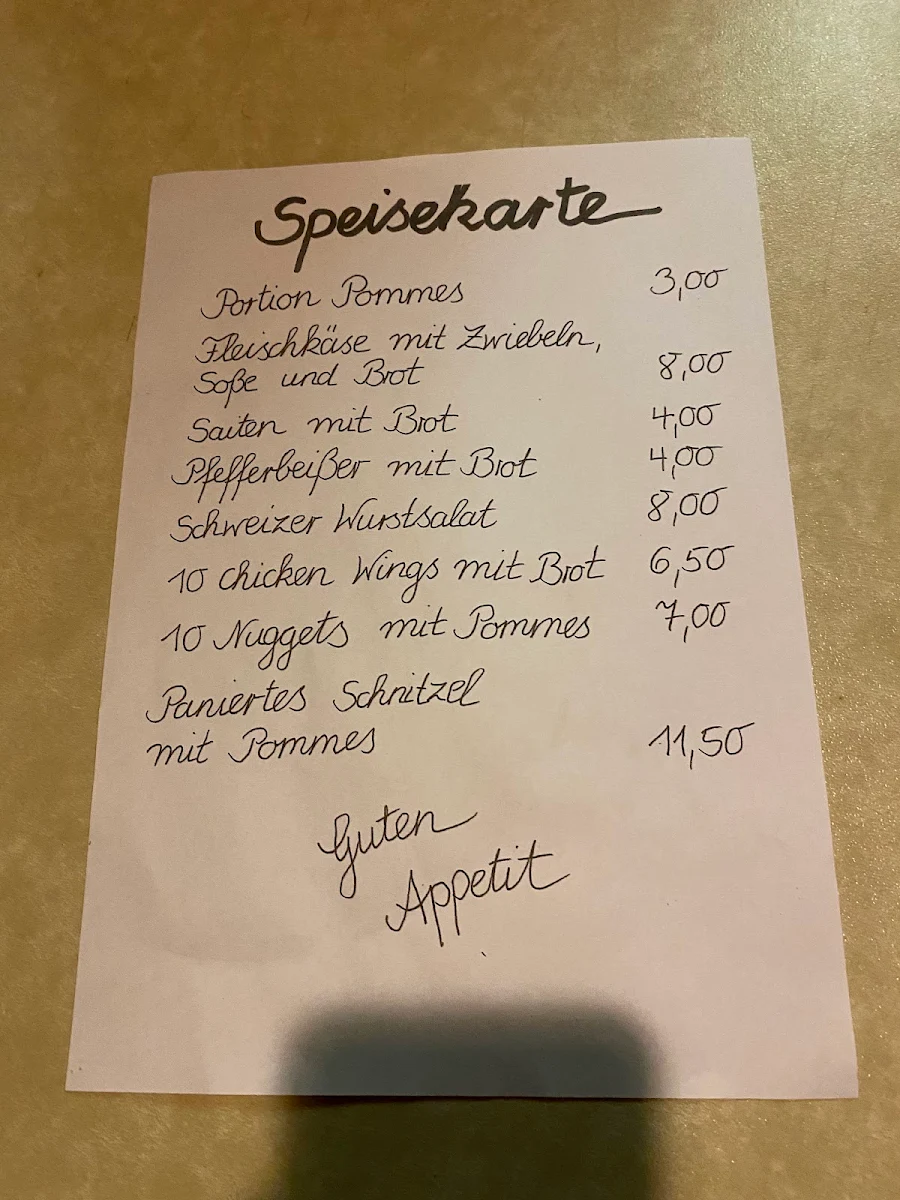 Speisekarte
Portion Pommes 3,00
Fleischkäse mit Zwiebeln,
Soße und Brot 8,00
Saiten mit Brot 4,00
Pfefferbeißer mit Brot 4,00
Schweizer Wurstsalat 8,00
10 chicken Wings mit Brot 6,50
10 Nuggets mit Pommes 7,00
Paniertes Schnitzel
mit Pommes 11,50
Guten
Appetit